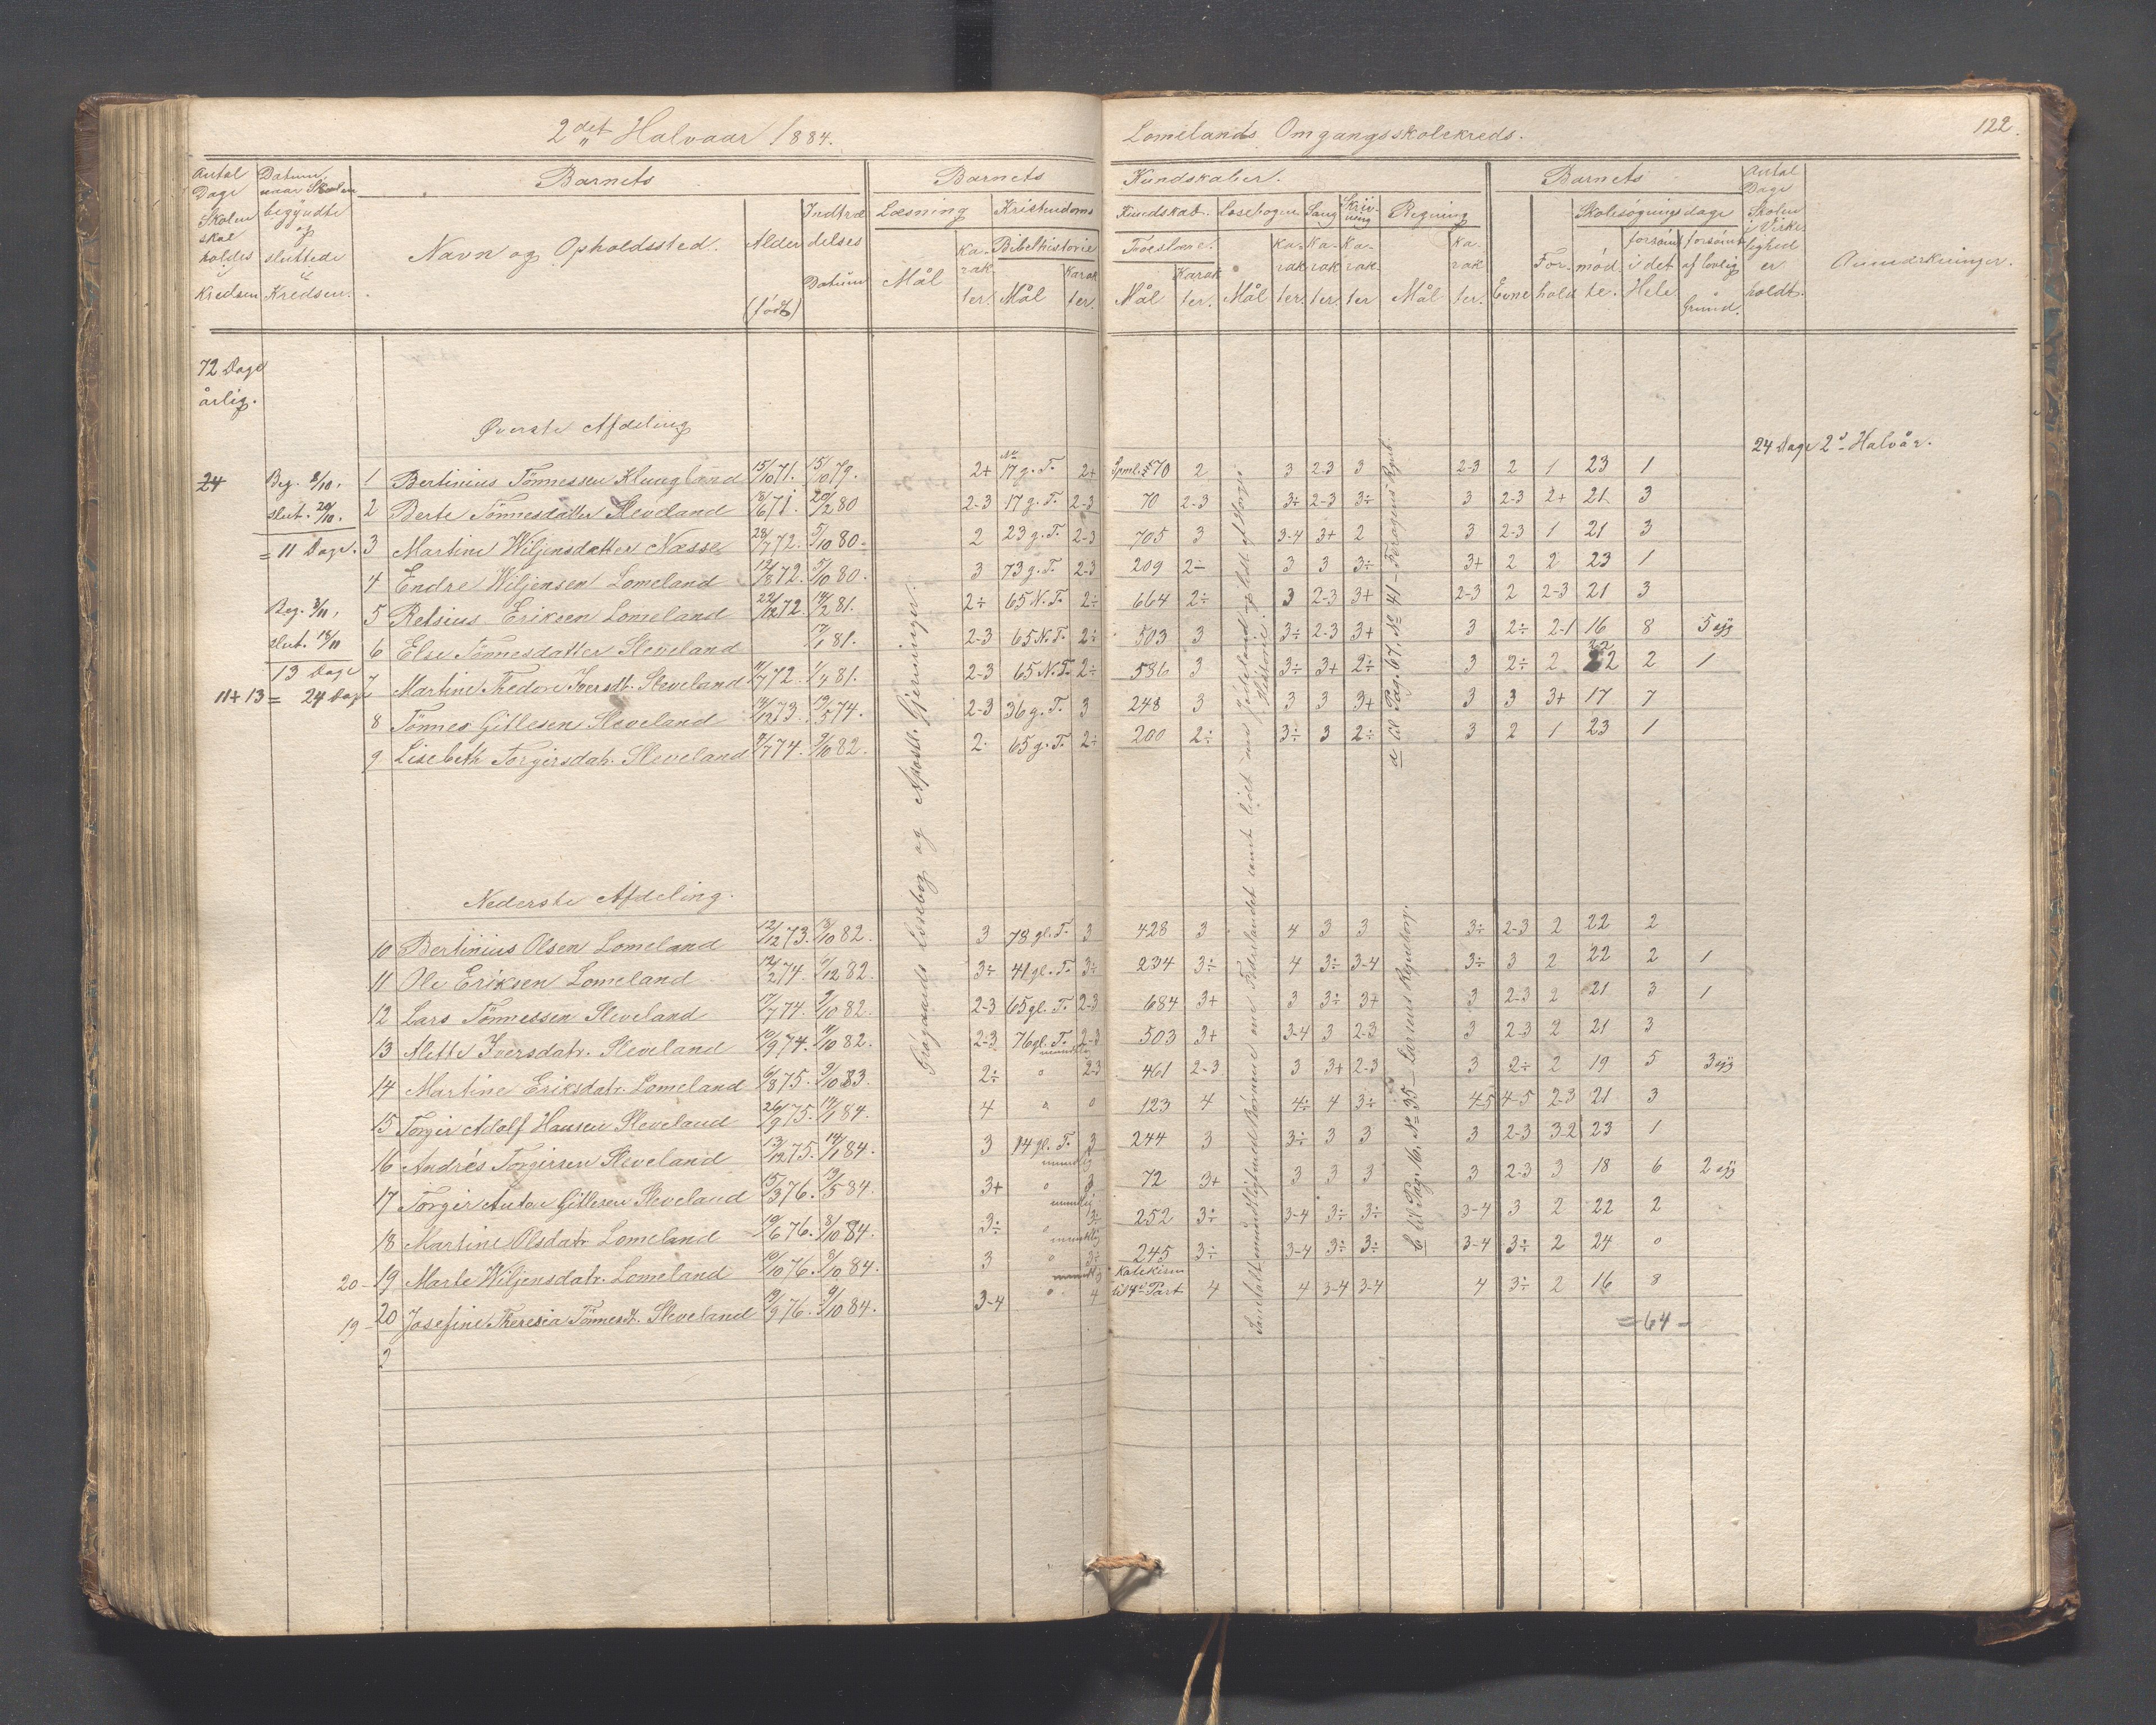 2det Halvaar 1884.
Lomelands Omgangsskolekreds.
122.
Antal Dage Skolen skal holdes i Kredsen
Datum naar Skolen begyndte og sluttede i Kredsen.
Barnets
Navn og Opholdssted.
Alder (født)
Indtrædelses Datum
Barnets Kundskaber.
Læsning
Mål
Karakter.
Kristendoms Kundskab.
Bibelhistorie
Mål
Karakter.
Troeslære.
Mål
Karakter.
Læsebogen
Mål
Karakter.
Sang
Karakter.
Skrivning
Karakter
Regning
Mål
Karakter.
Barnets
Evne
Forhold
Skolesøgningsdage
mødte.
forsømt i det Hele
forsømt af lovlig Grund.
Antal Dage Skolen i Virkelighed er holdt.
Anmærkninger.
72 Dage
årlig.
Øverste Afdeling
24 Dage 2d Halvår.
24
Beg. 8/10.
slut. 20/10.
= 11 Dage.
Beg. 3/11.
slut. 18/11
13 Dage
11 + 13 = 24 Dage
1 Bertinius Tönnessen Klungland 15/10 71. 15/10 79. 2+ 17 g. T. 2+ Spml. 570 2 3 2-3 3 2-3 2 1 23 1
2 Berte Tönnesdatter Sleveland 8/6 71. 20/2 80 2-3 17 g. T. 2-3 70 2-3 3÷ 2-3 3÷ 3 2-3 2+ 21 3
3 Martine Wiljensdatter Næsse 28/7 72. 5/10 80. 2 23 g. T. 2-3 705 3 3-4 3+ 2 3 2-3 1 21 3
4 Endre Wiljensen Lomeland 12/8 72. 5/10 80. 3 73 g. T. 2-3 209 2÷ 3 3 3÷ 3+ 2 2 23 1
5 Retsius Eriksen Lomeland 22/12 72. 14/2 81. 2÷ 65 N. T. 2÷ 664 2÷ 3 2-3 3+ 2-3 2 2-3 21 3
6 Else Tönnesdatter Sleveland 17/1 81. 2-3 65 N. T. 2÷ 503 3 3÷ 2-3 3+ 3 2÷ 2-1 16 8 5 syg
7 Martine Thedore Iversdt. Sleveland 11/7 72. 1/4 81. 2-3 65 N. T. 2÷ 586 3 3÷ 3+ 2÷ 3 2÷ 2 22 2 1
8 Tönnes Gitlesen Sleveland 14/12 73. 19/5 74. 2-3 36 g. T. 3 248 3 3 3 3+ 3 3 3+ 17 7
9 Lisebeth Torgirsdatr. Sleveland 7/7 74. 9/10 82. 2. 65 g. T. 2÷ 200 2÷ 3÷ 3 2÷ 3 2 1 23 1
Nederste Afdeling.
10 Bertinius Olsen Lomeland 12/12 73. 13/10 82. 3 78 gl. T. 3 428 3 4 3 3 3÷ 2-3 2 22 2
11 Ole Eriksen Lomeland 12/2 74. 1/12 82. 3÷ 41 gl. T. 3÷ 234 3÷ 4 3÷ 3-4 3÷ 3 2 22 2 1
12 Lars Tönnessen Sleveland 17/7 74. 9/10 82. 2-3 65 gl. T. 2-3 684 3+ 3 3÷ 3+ 3 2-3 2 21 3 1
13 Alette Iversdatr. Sleveland 10/9 74. 11/10 82. 2-3 76 gl. T. 2-3 503 3+ 3-4 3 2-3 3 2-3 2 21 3
14 Martine Eriksdatr. Lomeland 6/8 75. 9/10 83. 2÷ mundtlig 2-3 461 2-3 3 3+ 2-3 3 2÷ 2 19 5 3 syg
15 Torger Adolf Hansen Sleveland 26/9 75. 14/1 84. 4 0 0 123 4 4÷ 4 3÷ 4-5 4-5 2-3 21 3
16 Andrés Torgirsen Sleveland 13/12 75. 14/1 84. 3 14 gl. T. 3 244 3 3÷ 3 3 3 2-3 3-2 23 1
17 Torger Anton Gitlesen Sleveland 15/3 76. 13/5 84. 3+ mundtlig 3 72 3+ 3 3 3 3 2-3 3 18 6 2 syg
18 Martine Olsdatr Lomeland 19/6 76. 8/10 84. 3÷ mundtlig 3÷ 252 3÷ 3-4 3÷ 3÷ 3-4 3 2 22 2
20 - 19 Marte Wiljensdatr. Lomeland 10/10 76. 8/10 84. 3 mundtlig 3÷ 245 3÷ 3-4 3÷ 3÷ 3-4 3÷ 2 24 0
19 - 20 Josefine Theresia Tönnesdt. Sleveland 19/9 76. 9/10 84. 3-4 mundtlig 4 Katekism til 4d Part 4 4 3-4 3-4 4 3÷ 2 16 8
= 64 -
2
Læsebog og Apostl. Gjerninger.
a til Pag. 67. No 41 - Regneb.
b til Pag. 16. No 35 - Larsens Regnebog.